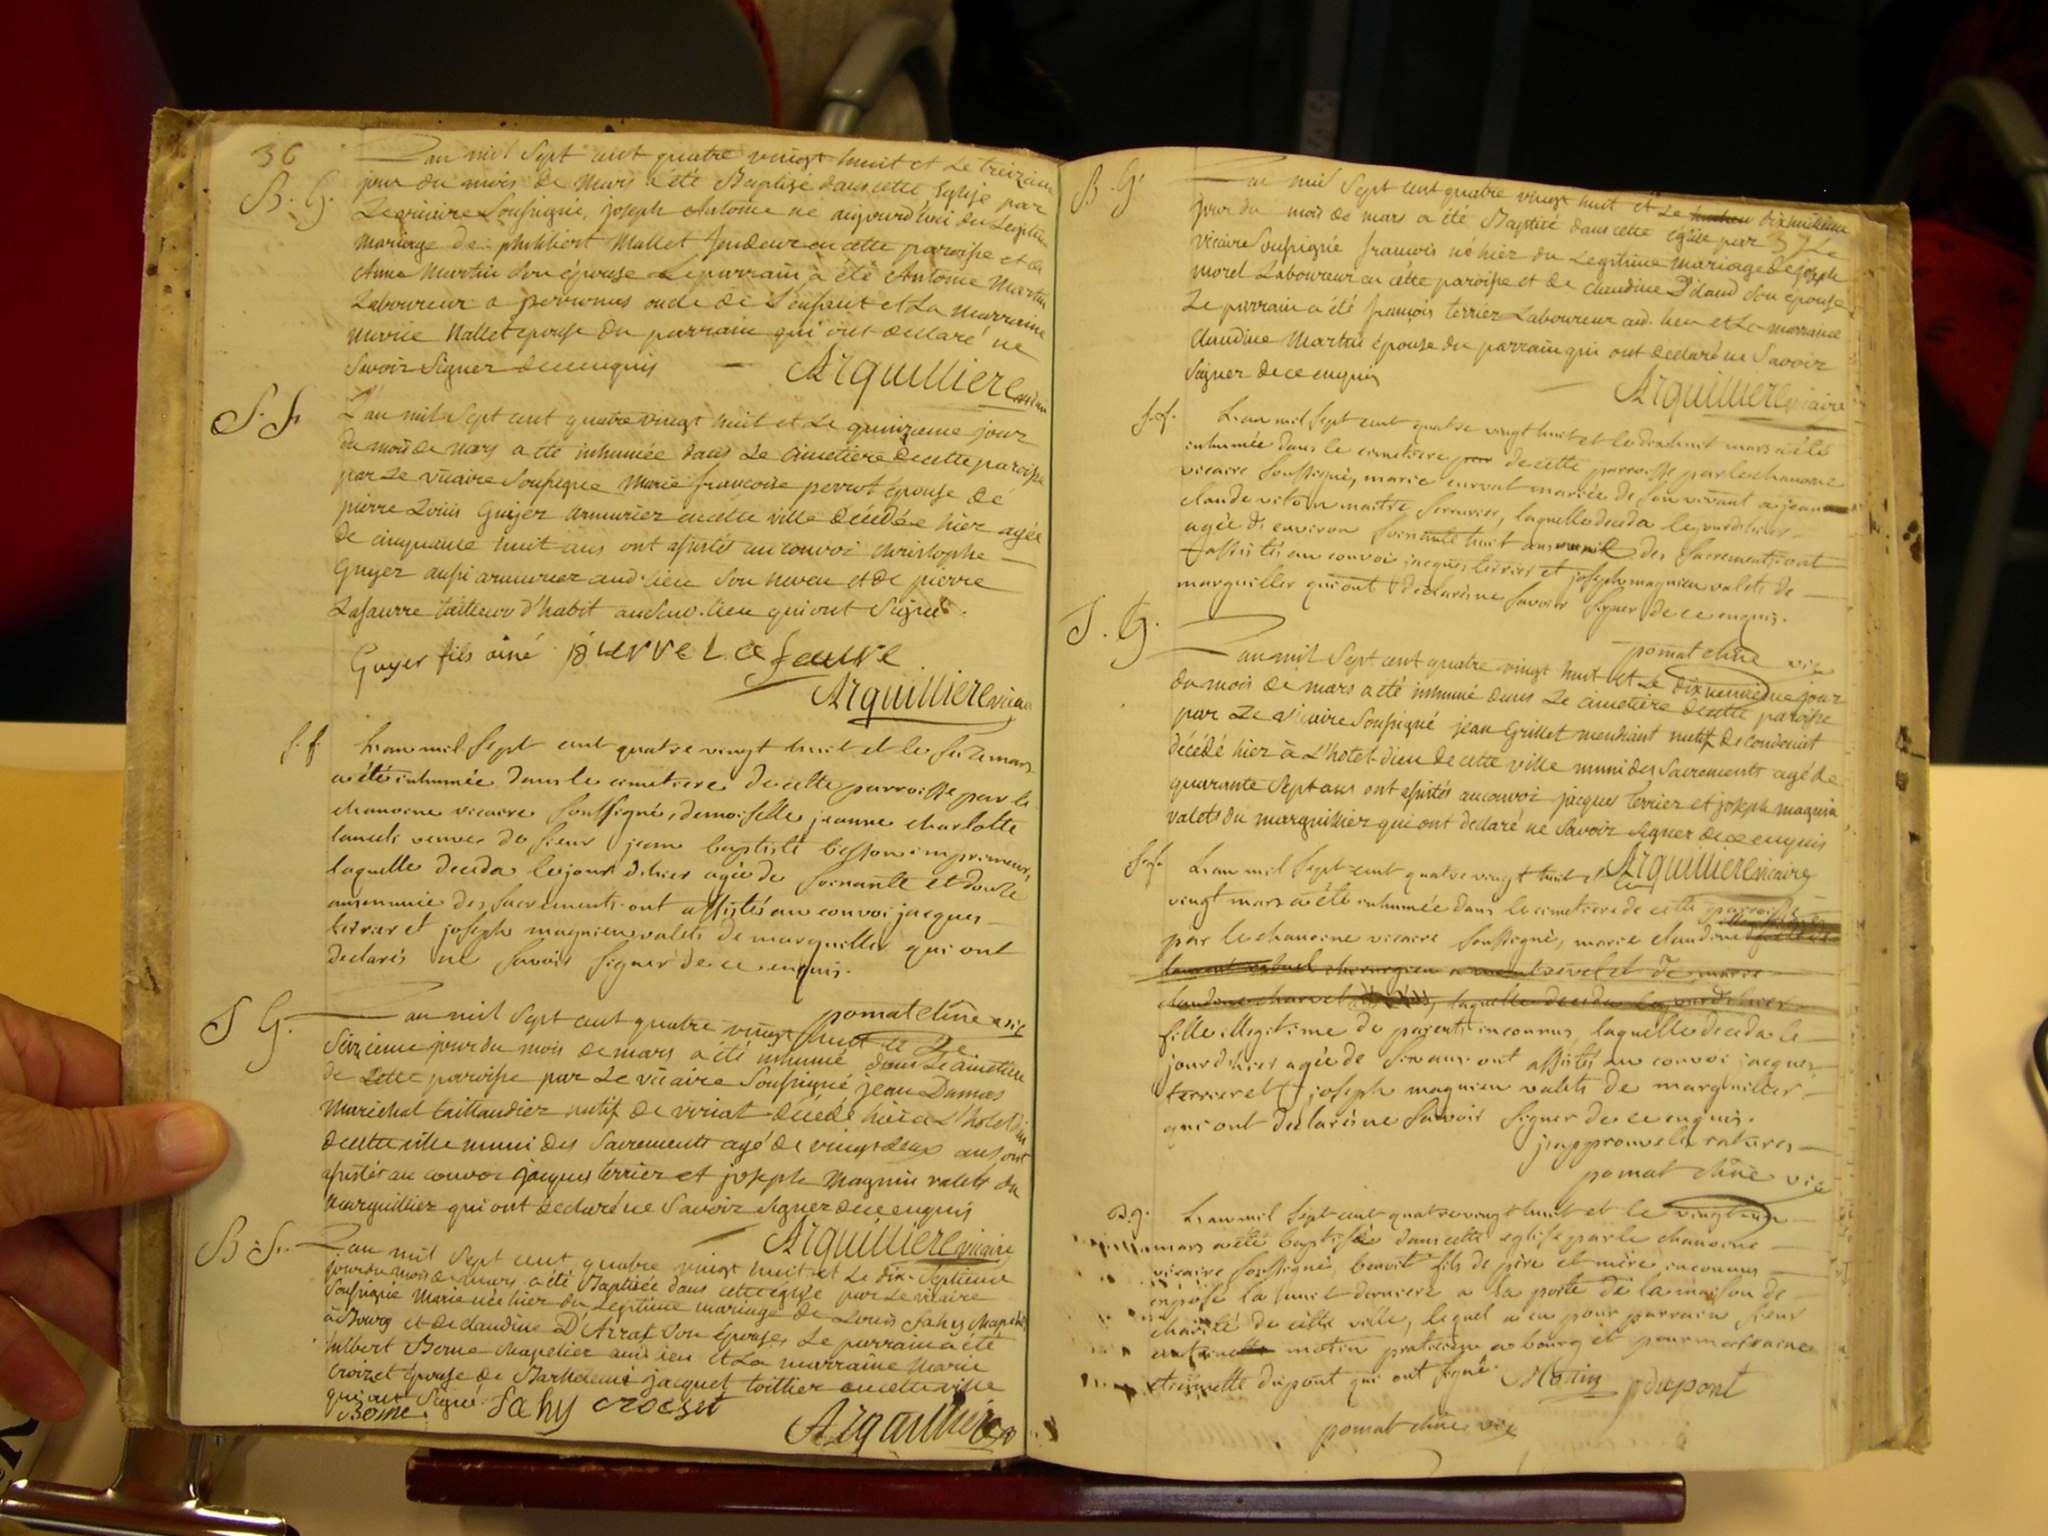 36
L'an mil Sept cent quatre vingt huit et Le treizieme
B. G. jour du mois de Mars a été Baptisé dans cette Eglise par
Le vicaire Soussigné, joseph Antoine né aujourd'hui du Legitime
mariage de philibert Mallet fendeur en cette paroisse et de
Anne Martin Son épouse Le parrain a été Antoine Martin
Laboureur a peronnas oncle de L'enfant et La Marraine
Marie Mallet epouse du parrain qui ont declaré ne
Savoir Signer de ce enquis
Arquilliere vicaire
S. F. L'an mil Sept cent quatre vingt huit et Le quinzieme jour
du mois de Mars a été inhumée dans Le cimetiere de cette paroisse
par Le vicaire Soussigné Marie françoise perrot épouse de
pierre Louis Guyer armurier en cette ville décédée hier agée
de cinquante huit ans ont assistés au convoi christophe
Guyer aussi armurier aud. lieu Son neveu et de pierre
Lafaurre tailleur d'habit aud. lieu qui ont Signé.
Guyer fils ainé pierre Lafaure
Arquilliere vicaire
S. f. L'an mil Sept cent quatre vingt huit et le Seize mars
a été inhumée dans le cimetiere de cette parroisse par le
chanoine vicaire Soussigné, demoiselle jeanne charlotte
veuve de Sieur jean baptiste besson imprimeur,
laquelle deceda le jour d'hier agée de Soixante et douze
ans munie des Sacrements ont assistés au convoi jacques
terrier et joseph magnien valets de marguiller qui ont
declarés ne Savoir Signer de ce enquis.
pomat chne vic
S G. L'an mil Sept cent quatre vingt huit et Le
Seizieme jour du mois de mars a été inhumé dans Le cimetiere
de Cette paroisse par Le vicaire Soussigné jean Dumas
Maréchal taillandier natif de viriat décédé hier a L'hotel Dieu
de cette ville muni des Sacrements agé de vingt deux ans ont
assistés au convoi jacques terrier et joseph Magnin valets du
Marguillier qui ont declaré ne Savoir Signer de ce enquis
Arquilliere vicaire
B. F. L'an mil Sept cent quatre vingt huit et Le dix-Septieme
jour du mois de mars a été Baptisée dans cette eglise par Le vicaire
Soussigné Marie née hier du Legitime mariage de Louis Fahy Chapelier
à Bourg et de claudine D'Arraz Son épouse, Le parrain a été
Berne chapelier aud. lieu et La marraine Marie
Croizet épouse de jacquet en cette ville
qui ont Signé
Berne Fahy croeset
Arquilliere
L'an mil Sept cent quatre vingt huit et Le dixhuitieme
B. G. jour du mois de mars a été Baptisé dans cette eglise par Le
37
vicaire Soussigné françois né hier du Legitime mariage de joseph
morel Laboureur en cette paroisse et de claudine Son épouse
Le parrain a été françois terrier Laboureur aud. lieu et La marraine
claudine Martin épouse du parrain qui ont declaré ne Savoir
Signer de ce enquis
Arquilliere vicaire
S. f. L'an mil Sept cent quatre vingt huit et le dix huit mars a été
inhumée dans le cimetiere de cette parroisse par le chanoine
vicaire Soussigné, marie mariée de Son vivant a jean
claude maitre Serrurier, laquelle deceda le jour d'hier
agée d'environ Soixante huit ans munie des Sacrements ont
assistés au convoi jacques terrier et joseph magnien valets de
marguiller qui ont declarés ne Savoir Signer de ce enquis.
pomat chne vic
S. G. L'an mil Sept cent quatre vingt huit et Le dix neuvieme jour
du mois de mars a été inhumé dans Le cimetiere de cette paroisse
par Le vicaire Soussigné jean Grillet mendiant natif de condeissiat
décédé hier à L'hotel-dieu de cette ville muni des Sacrements agé de
quarante Sept ans ont assistés au convoi jacques terrier et joseph magnin
valets du marguillier qui ont declaré ne Savoir Signer de ce enquis
Arquilliere vicaire
S. f. L'an mil Sept cent quatre vingt huit et le
vingt mars a été inhumée dans le cimetiere de cette parroisse
par le chanoine vicaire Soussigné, marie claudine
fille illegitime de parents inconnus, laquelle deceda le
jour d'hier agée de Six ans ont assistés au convoi jacques
terrier et joseph magnien valets de marguiller
qui ont declarés ne Savoir Signer de ce enquis.
japprouve les ratures
pomat chne vic
B. g. L'an mil Sept cent quatre vingt huit et le vingt un
mars a été baptisé dans cette eglise par le chanoine
vicaire Soussigné, benoit fils de père et mère inconnus
exposé la nuit derniere a la porte de la maison de
charité de cette ville, lequel a eu pour parrain Sieur
antoine matin praticien a bourg et pour marraine
etiennette dupont qui ont Signé.
Matin dupont
pomat chne vic